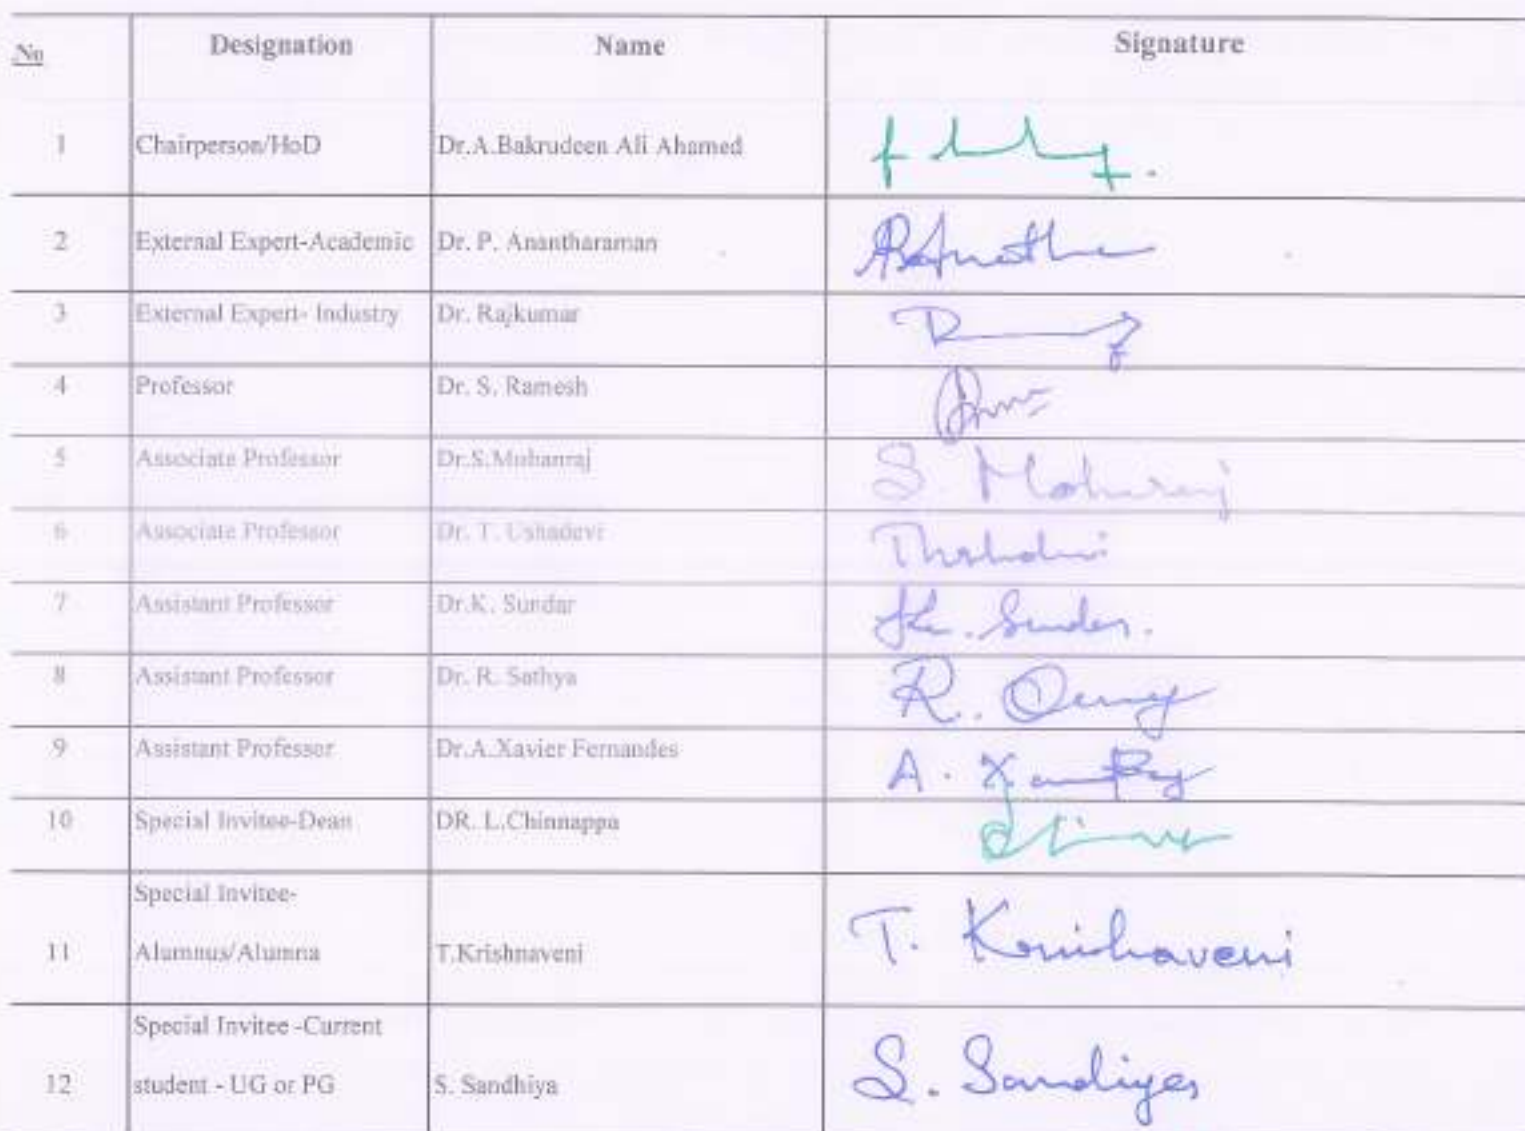 No Designation Name Signature
1 Chairperson/HoD Dr.A.Bakrudeen Ali Ahamed
2 External Expert-Academic Dr. P. Anantharaman
3 External Expert- Industry Dr. Rajkumar
4 Professor Dr. S. Ramesh
5 Associate Professor Dr.S.Mohanraj S. Mohanraj
6 Associate Professor Dr. T. Ushadevi
7 Assistant Professor Dr.K. Sundar K. Sundar.
8 Assistant Professor Dr. R. Sathya R.
9 Assistant Professor Dr.A.Xavier Fernandes A.
10 Special Invitee-Dean DR. L.Chinnappa
Special Invitee-
11 Alumnus/Alumna T.Krishnaveni T. Krishaveni
Special Invitee -Current
12 student - UG or PG S. Sandhiya S. Sandiya